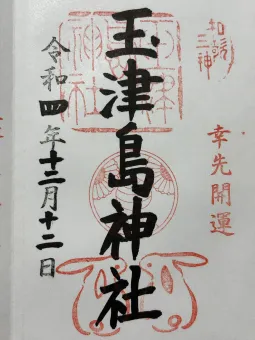 和歌三神
幸先開運
玉津島神社
令和四年十二月十二日